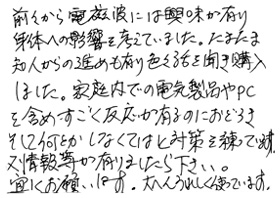 前々から電磁波には興味が有り
身体への影響を考えていました。たまたま
知人からの進めも有り色々話を聞き購入
しました。家庭内での電気製品やPC
を含めすごく反応が有るのにおどろき
そして何とかしなくてはと対策を練って
又情報等が有りましたら下さい。
宜しくお願いします。大へんうれしく使っています。